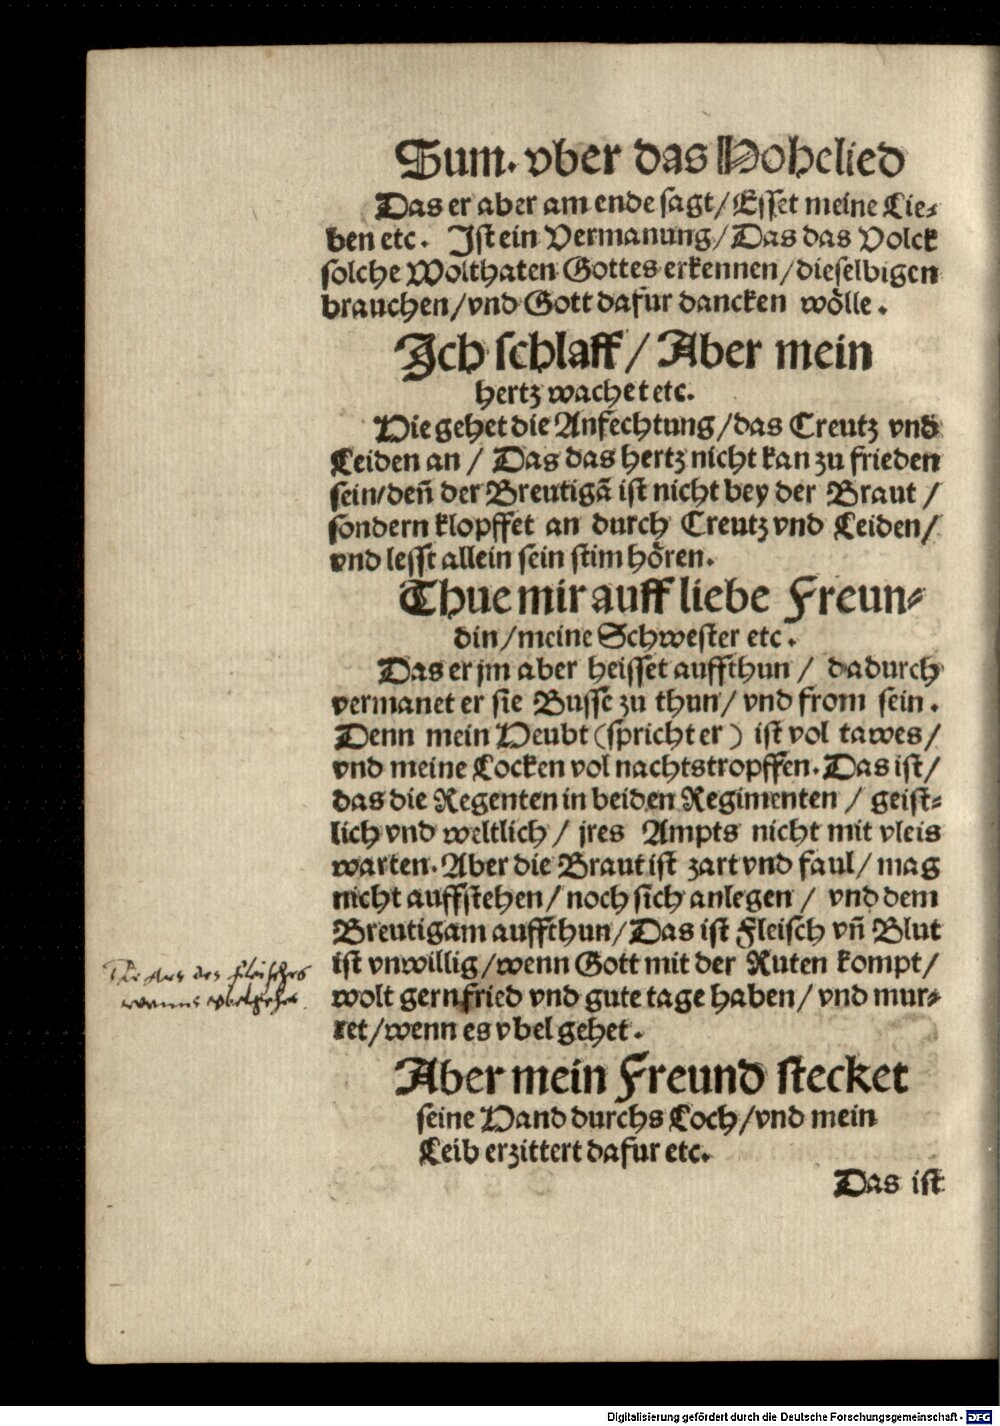 Sum. vber das Hohelied
Das er aber am ende sagt/Esset meine Lie⸗
ben etc. Ist ein Vermanung/Das das Volck
solche Wolthaten Gottes erkennen/dieselbigen
brauchen/vnd Gott dafur dancken wölle.
Ich schlaff/Aber mein
hertz wachet etc.
Hie gehet die Anfechtung/das Creutz vnd
Leiden an/Das das hertz nicht kan zu frieden
sein/deñ der Breutigã ist nicht bey der Braut/
sondern klopffet an durch Creutz vnd Leiden/
vnd lesst allein sein stim hören.
Thue mir auff liebe Freun⸗
din/meine Schwester etc.
Das er jm aber heisset auffthun/dadurch
vermanet er sie Busse zu thun/vnd from sein.
Denn mein Heubt (spricht er) ist vol tawes/
vnd meine Locken vol nachtstropffen. Das ist/
das die Regenten in beiden Regimenten/geist⸗
lich vnd weltlich/jres Ampts nicht mit vleis
warten. Aber die Braut ist zart vnd faul/mag
nicht auffstehen/noch sich anlegen/vnd dem
Breutigam auffthun/Das ist Fleisch vñ Blut
ist vnwillig/wenn Gott mit der Ruten kompt/
wolt gern fried vnd gute tage haben/vnd mur⸗
ret/wenn es vbel gehet.
des fleisches
Aber mein Freund stecket
seine Hand durchs Loch/vnd mein
Leib erzittert dafur etc.
Das ist
Digitalisierung gefördert durch die Deutsche Forschungsgemeinschaft - DFG